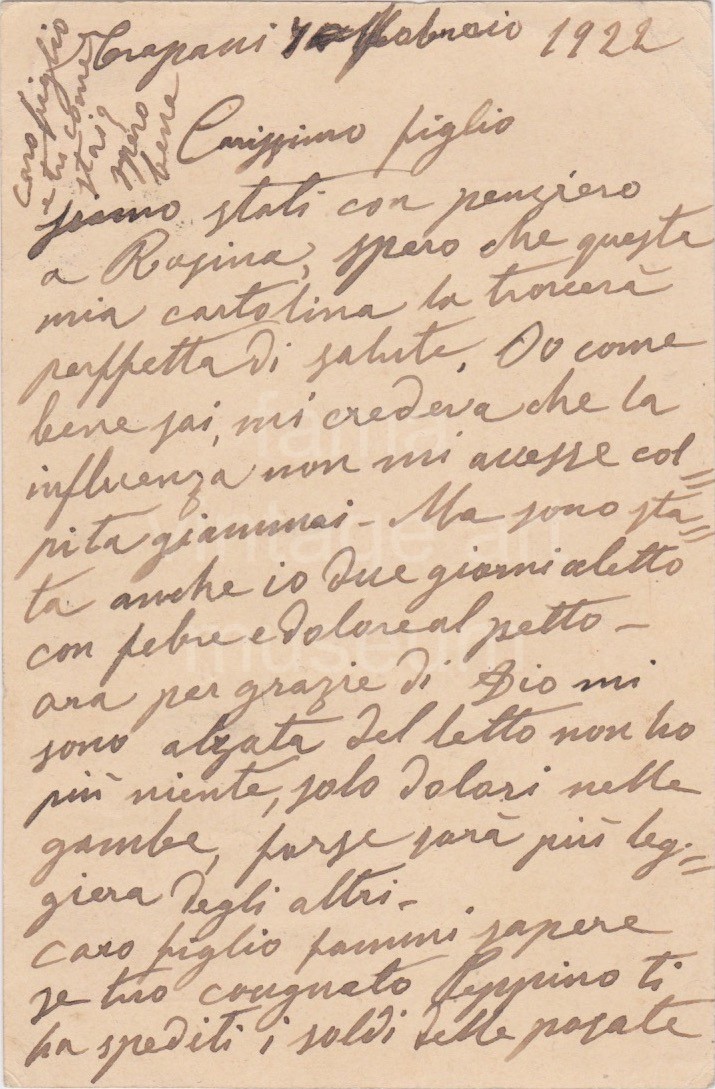 Trapani Febbraio 1922
Carissimo figlio
siamo stati con penziero
a Rosina, spero che questa
mia cartolina la troverà
perffetta di salute, Io come
bene sai, mi credeva che la
influenza non mi avesse col=
pita giammai - Ma sono sta=
ta anche io due giorni aletto
con febre e dolore al petto -
ora per grazie di Dio mi
sono alzata del letto non ho
più niente, solo dolori nelle
gambe, forse sarà più leg=
giera degli altri -
caro figlio fammi sapere
se tuo congnato Peppino ti
ha spediti i soldi delle posate
caro figlio
e tu come
stai?
spero
bene
fama
vintage art
museum